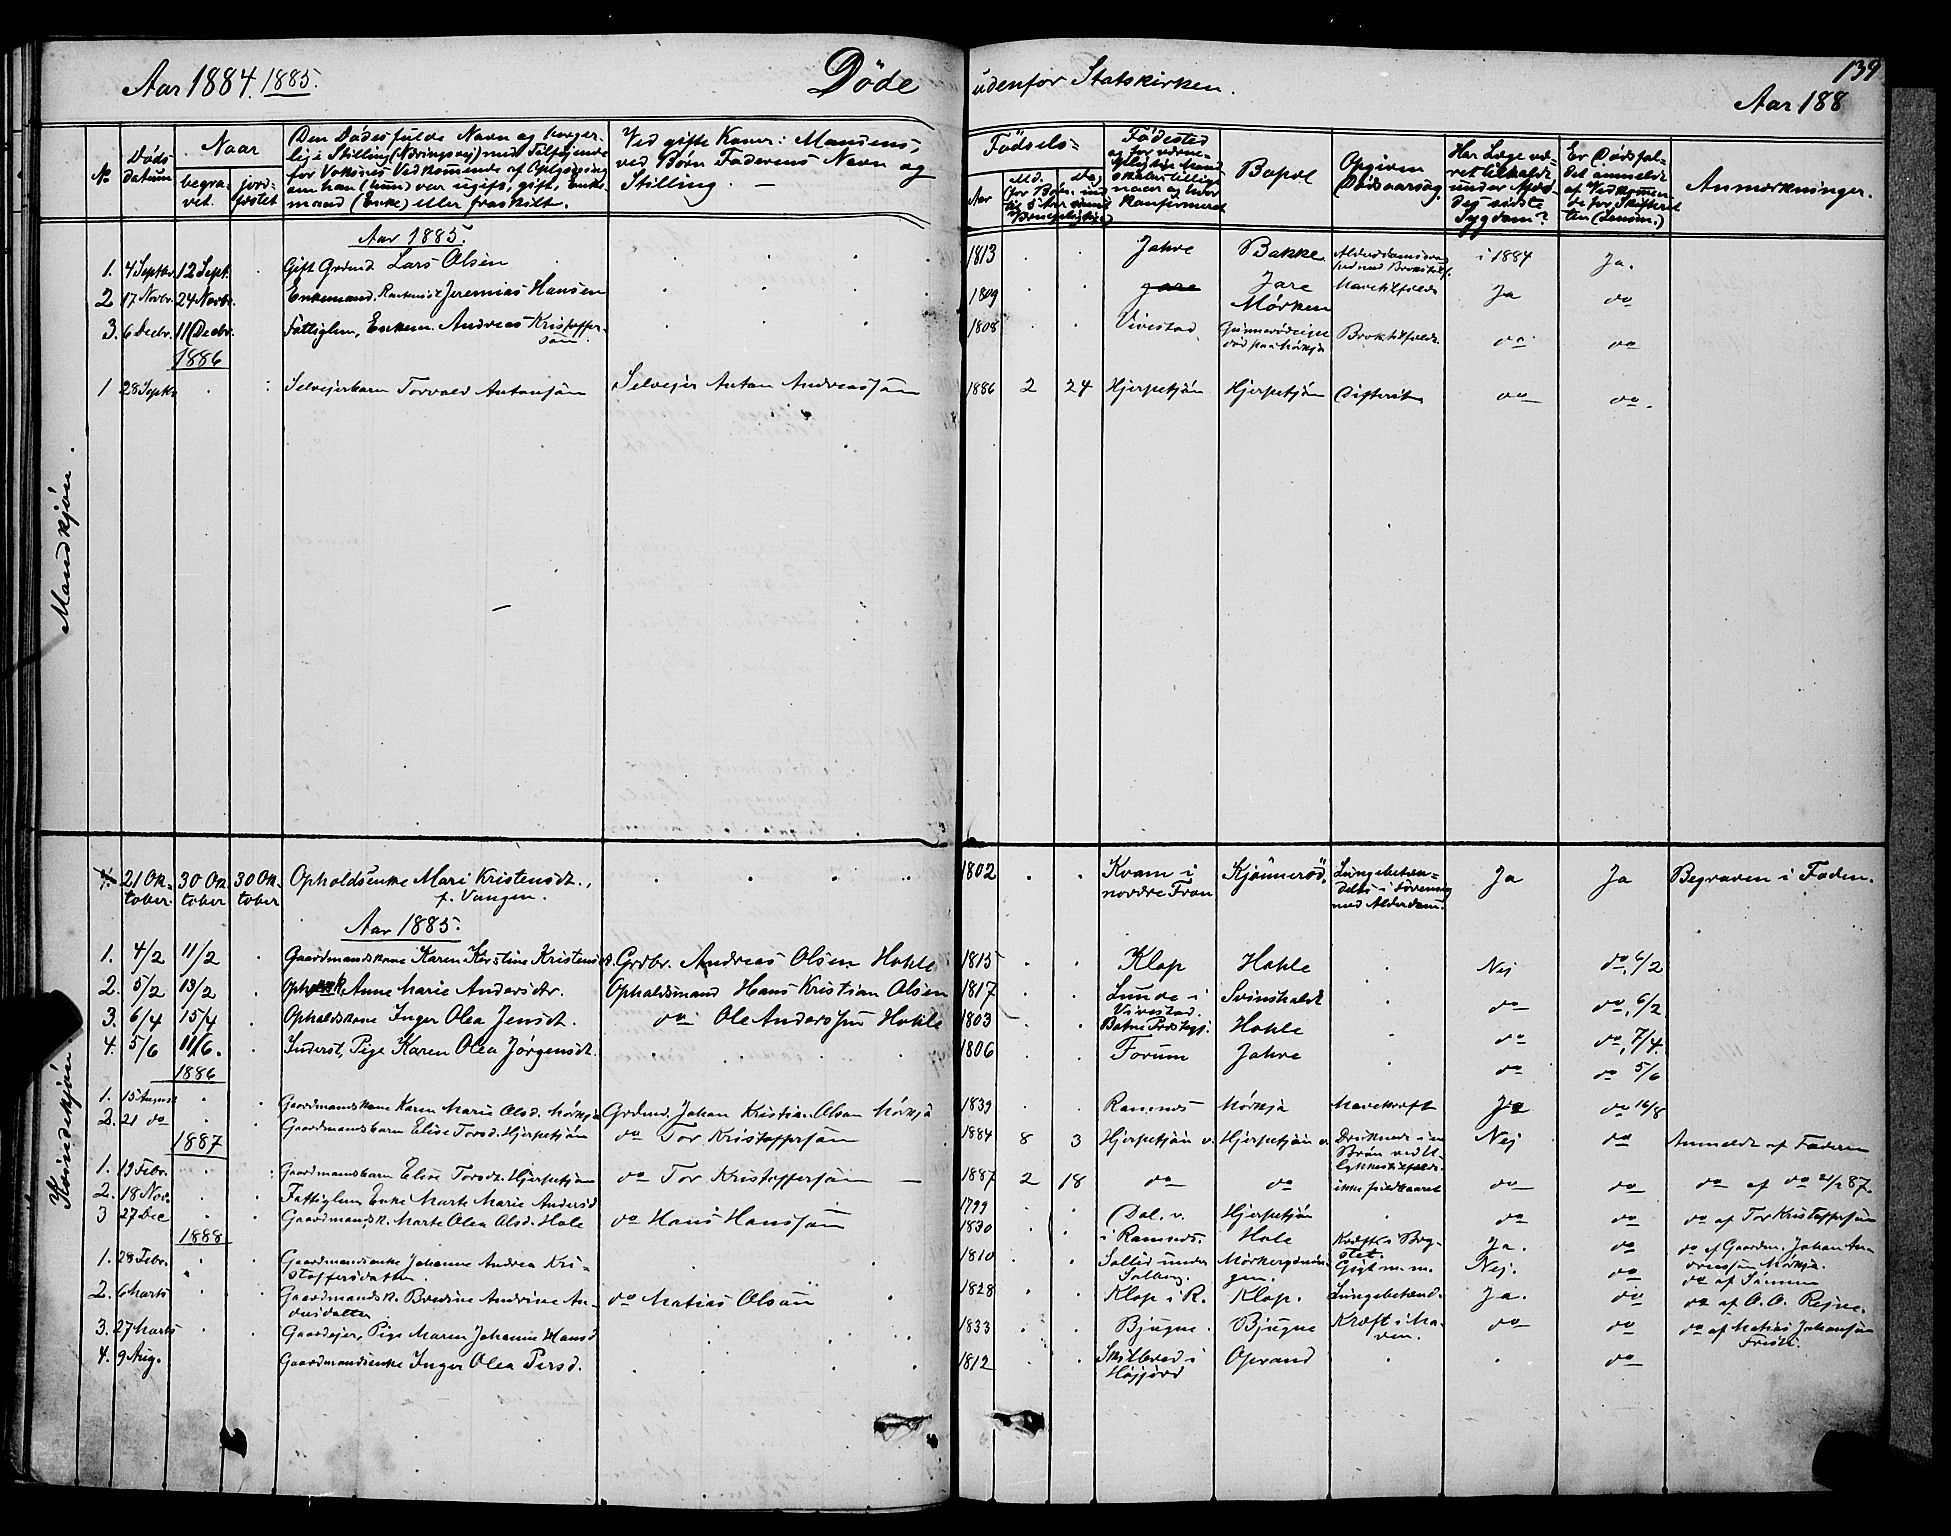 Aar 1884. 1885. Døde udenfor Statskirken. 139
Aar 188
No
Døds datum
Naar
begravet.
jordfæstet
Den Dødes fulde Navn og borgerlige Stilling (Næringsvej) med Tilføjende for Voksnes Vedkommende af Oplysning om han (hun) var ugift, gift, Enkemand (Enke) eller fraskilt.
Ved gifte Koner: Mandens, ved Børn Faderens Navn og Stilling. —
Fødsels-
Aar
Md.
Dag
Fødested
Bopæl
Opgiven Dødsaarsag.
Har Læge været tilkaldt under Afdødes sidste Sygdom?
Er Dødsfaldet anmeldt af Vedkommende for Skifteretten (Lensm.)
Anmærkninger.
Mandkjøn.
Aar 1885.
1. 4 Septbr. 12 Sept. Gift Grdmd Lars Olsen 1813 Jahre Bakke i 1884 Ja.
2 17 Novbr. 24 Novbr. Enkemand, Jeremias Hansen 1809 Jare Jare Mørken Mavetilfælde Ja do
3. 6 Decbr. 11 Decbr. Fattiglem, Enkem. Andreas Kristoffersøn. 1808 Vivestad Broktilfælde. do do
1886
1 28 Septbr Selvejerbarn Torvald Antonsøn Selvejer Anton Andreassøn 1886 2 24 Hjerpetjøn Hjerpetjøn Difterit do do.
Kvindekjøn.
1. 21 Oktober. 30 Oktober 30 Oktober Opholdsenke Mari Kristensdt., f. Vangen. 1802 Kvam i nordre Fron Kjønnerød. Lungebetændelse i Forening med Alderdom. Ja Ja Begraven i Foden.
Aar 1885.
1. 4/2 11/2 Gaardmandskone Karen Kerstine Kristensdt. Grdbr. Andreas Olsen Hohle 1815 Klop Hohle Nej do, 6/2
2. 5/2 13/2 Anne Marie Andersdtr. Opholdsmand Hans Kristian Olsen 1817 Lunde i Vivestad. Svinsholdt do do, 6/2
3. 6/4 15/4 Opholdskone Inger Olea Jensdt. do Ole Anderssøn Hohle 1803 Hohle do do, 7/4.
4. 5/6 11/6. Inderst, Pige Karen Olea Jørgensdt. 1806 Forum Jahre do do 5/6
1886
1. 15 August Gaardmandskone Karen Marie Olsd. Mørkja Grdmd. Johan Kristian Olsen Mørkja 1839 Ramnes Mørkja Mavekræft Ja do 16/8
2. 21 do Gaardmandsbarn Elise Torsd. Hjerpetjøn do Tor Kristoffersøn 1884 8 3 Hjerpetjøn v. Hjerpetjøn v. Druknede i en Brøn ved Ulykkestilfælde. Nej do Anmeldt af Faderen
1887
1. 19 Febr. Gaardmandsbarn Elise Torsdt. Hjerpetjøn do Tor Kristoffersøn — 1887 2 18 do do ikke forklaaret do do do af do 21/2 87.
2. 18 Nov. Fattiglem Enke Marte Marie Andersd 1799 Dal, v. Hjerpetjøn do do do af Tor Kristoffersøn
3 27 Dec Gaardmandsk. Marte Olea Olsd. Hole do Hans Hanssøn 1830 i Ramnes. Hole Kræft i Brystet. Ja. do do af Gaardm. Johan Andreassøn Mørkja.
1888
1. 28 Febr. Gaardmandsenke Johanne Andrea Kristoffersdatter. 1810 Sollid under Solberg. Gigt m. m. Nej. do do af Sønnen
2. 6 Marts Gaardmandsk. Bredine Andrine Andersdatter do Matias Olsøn 1828 Klop i R. Klop. Lungebetænd. Ja. do do af O. O. Rejne.
3. 27 Marts Gaardejer, Pige Maren Johanne Hansd 1833 Bjugne. Bjugne Kræft i Maven. do do do af Matias Johansøn
4. 9 Aug. Gaardmandsenke Inger Olea Persd. 1812 Skilbred i Højjord Oprand do